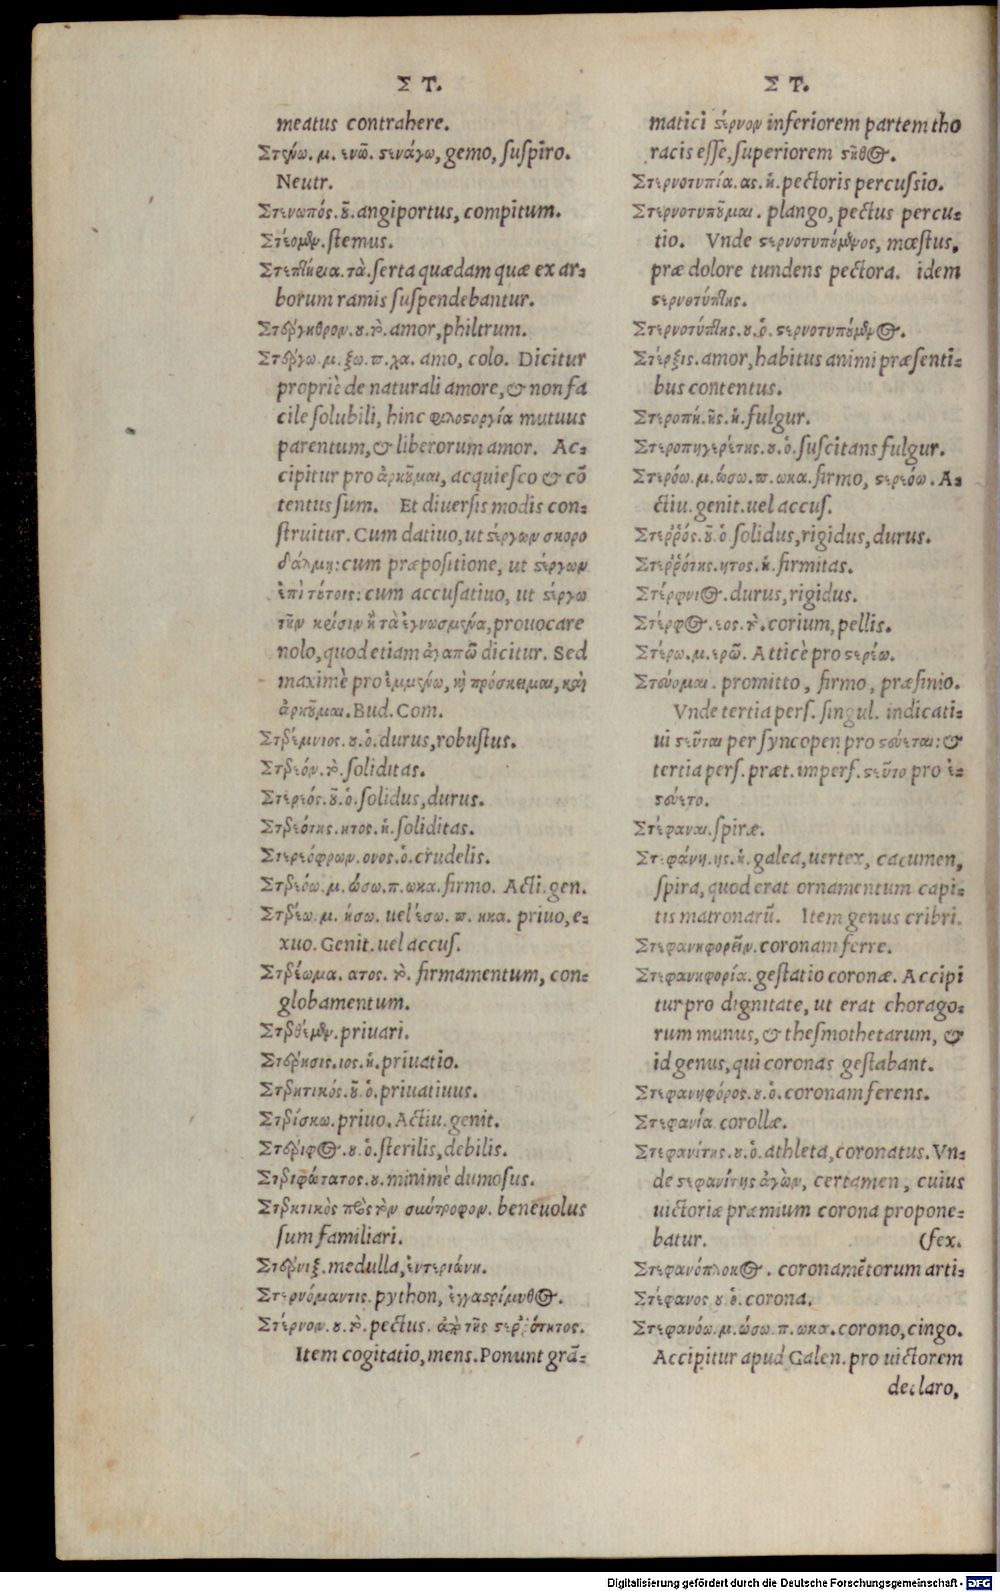 ΣΤ.
meatus contrahere.
Στένω. μ. ενῶ. στενάγω, gemo, suspiro.
Neutr.
Στενωπός. οῦ. angiportus, compitum.
Στέομδμ. stemus.
Στεπτήρια. τὰ. serta quædam quæ ex ar-
borum ramis suspendebantur.
Στέργηθρον. ου. τὸ. amor, philtrum.
Στέργω. μ. ξω. π. χα. amo, colo. Dicitur
propriè de naturali amore, & non fa
cile solubili, hinc φιλοστοργία mutuus
parentum, & liberorum amor. Ac-
cipitur pro ἀρκοῦμαι, acquiesco & cō
tentus sum. Et diuersis modis con-
struitur. Cum datiuo, ut στέργων σκορο
δάλμῃ: cum præpositione, ut στέργων
ἐπὶ τούτοις: cum accusatiuo, ut στέργω
τὴν κρίσιν ἢ τὰ ἐγνωσμένα, prouocare
nolo, quod etiam ἀγαπῶ dicitur. Sed
maximè pro ἐμμένω, καὶ πρόσκειμαι, καὶ
ἀρκοῦμαι. Bud. Com.
Στερέμνιος. ου. ὁ. durus, robustus.
Στερεόν. τὸ. soliditas.
Στερεός. οῦ. ὁ. solidus, durus.
Στερεότης. ητος. ἡ. soliditas.
Στερεόφρων. ονος. ὁ. crudelis.
Στερεόω. μ. ώσω. π. ωκα. firmo. Acti. gen.
Στερέω. μ. ήσω. uel έσω. π. ηκα. priuo, e-
xuo. Genit. uel accus.
Στερέωμα. ατος. τὸ. firmamentum, con-
globamentum.
Στερθέμδμ. priuari.
Στέρησις. ιος. ἡ. priuatio.
Στερητικός. οῦ. ὁ. priuatiuus.
Στερίσκω. priuo. Actiu. genit.
Στέριφος. ου. ὁ. sterilis, debilis.
Στεριφώτατος. ου. minimè dumosus.
Στερκτικὸς πρὸς τὸν σιωότροφον. beneuolus
sum familiari.
Στέρνιξ. medulla, ἐντεριώνη.
Στερνόμαντις. python, ἐγγαστρίμυθος.
Στέρνον. ου. τὸ. pectus. ἀπὸ τῆς στερρότητος.
Item cogitatio, mens. Ponunt grā-
ΣΤ.
matici στέρνον inferiorem partem tho
racis esse, superiorem στῆθος.
Στερνοτυπία. ας. ἡ. pectoris percussio.
Στερνοτυποῦμαι. plango, pectus percu-
tio. Vnde στερνοτυπούμενος, mœstus,
præ dolore tundens pectora. idem
στερνοτύπτης.
Στερνοτύπτης. ου. ὁ. στερνοτυπούμενος.
Στέρξις. amor, habitus animi præsenti-
bus contentus.
Στεροπή. ῆς. ἡ. fulgur.
Στεροπηγερέτης. ου. ὁ. suscitans fulgur.
Στερόω. μ. ώσω. π. ωκα. firmo, στερεόω. A-
ctiu. genit. uel accus.
Στεῤῥός. οῦ. ὁ solidus, rigidus, durus.
Στεῤῥότης. ητος. ἡ. firmitas.
Στέρφνιος. durus, rigidus.
Στέρφος. εος. τὸ. corium, pellis.
Στέρω. μ. ερῶ. Atticè pro στερέω.
Στεύομαι. promitto, firmo, præfinio.
Vnde tertia pers. singul. indicati-
ui στεῦται per syncopen pro στεύεται: &
tertia pers. præt. imperf. στεῦτο pro ἐ-
στεύετο.
Στέφαναι. spiræ.
Στεφάνη. ης. ἡ. galea, uertex, cacumen,
spira, quod erat ornamentum capi-
tis matronarū. Item genus cribri.
Στεφανηφορεῖν. coronam ferre.
Στεφανηφορία. gestatio coronæ. Accipi
tur pro dignitate, ut erat chorago-
rum munus, & thesmothetarum, &
id genus, qui coronas gestabant.
Στεφανηφόρος. ου. ὁ. coronam ferens.
Στεφανία corollæ.
Στεφανίτης. ου. ὁ. athleta, coronatus. Vn-
de στεφανίτης ἀγὼν, certamen, cuius
uictoriæ præmium corona propone-
batur. (fex.
Στεφανόπλοκος. coronamētorum arti-
Στέφανος ου. ὁ. corona.
Στεφανόω. μ. ώσω. π. ωκα. corono, cingo.
Accipitur apud Galen. pro uictorem
declaro,
Digitalisierung gefördert durch die Deutsche Forschungsgemeinschaft - DFG